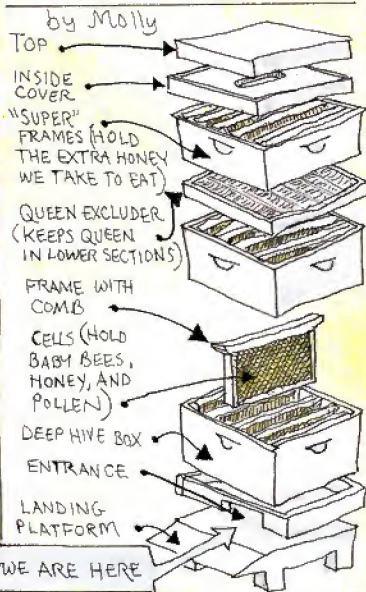 by Molly
TOP
INSIDE
COVER
"SUPER"
FRAMES (HOLD
THE EXTRA HONEY
WE TAKE TO EAT)
QUEEN EXCLUDER
(KEEPS QUEEN
IN LOWER SECTIONS)
FRAME WITH
COMB
CELLS (HOLD
BABY BEES,
HONEY, AND
POLLEN)
DEEP HIVE BOX
ENTRANCE
LANDING
PLATFORM
WE ARE HERE